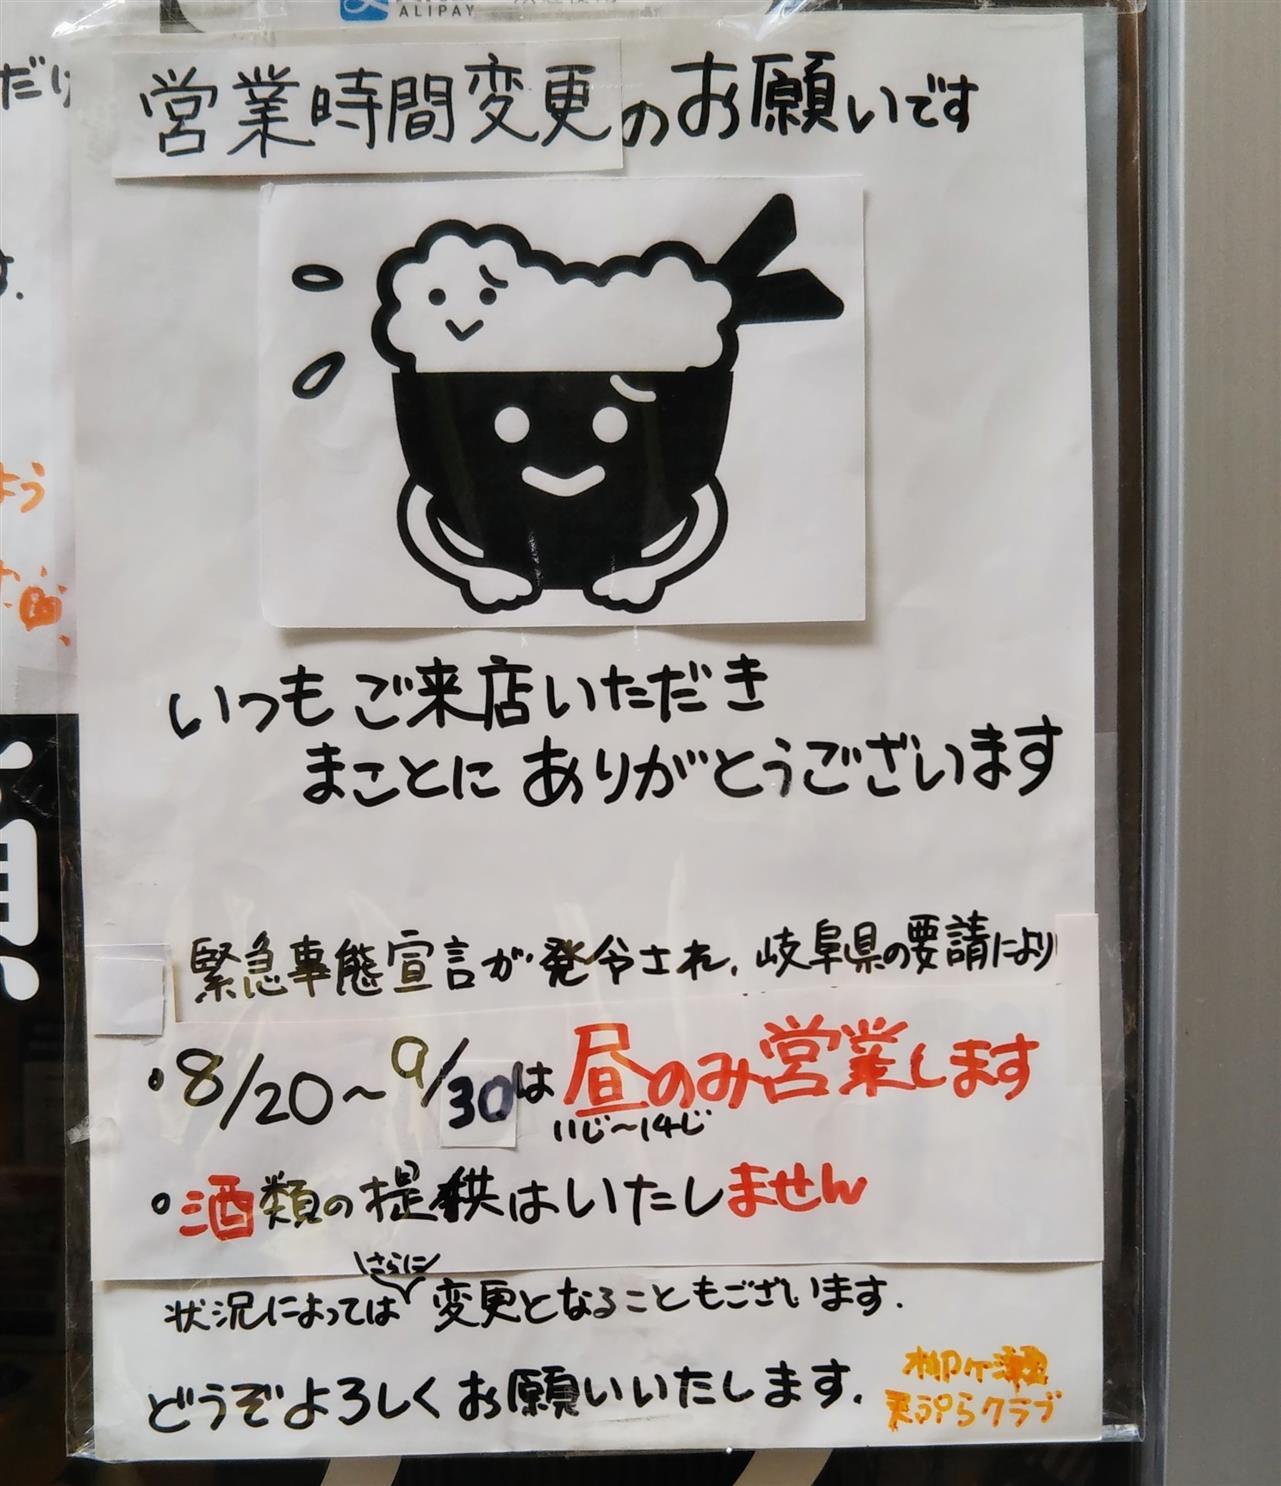 ALIPAY
営業時間変更のお願いです
いつもご来店いただき
まことにありがとうございます
緊急事態宣言が発令され、岐阜県の要請により
・8/20～9/30は昼のみ営業します
11じ～14じ
・酒類の提供はいたしません
さらに
状況によっては変更となることもございます.
どうぞよろしくお願いいたします.
柳ケ瀬
天ぷらクラブ